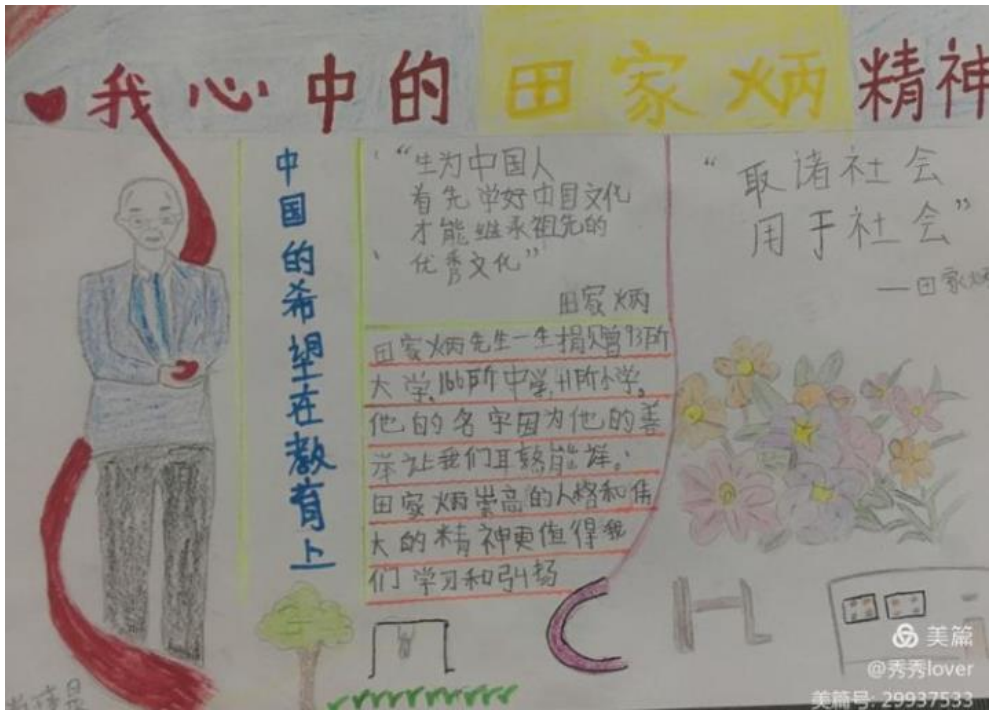 我心中的田家炳精神
中国的希望在教育上
“生为中国人
首先学好中国文化
才能继承祖先的
优秀文化”
田家炳
田家炳先生一生捐赠93所
大学,166所中学,41所小学。
他的名字因为他的善
举让我们耳熟能详。
田家炳崇高的人格和伟
大的精神更值得我
们学习和弘扬
“取诸社会
用于社会”
——田家炳
C H
美篇
@秀秀lover
美篇号: 29937533